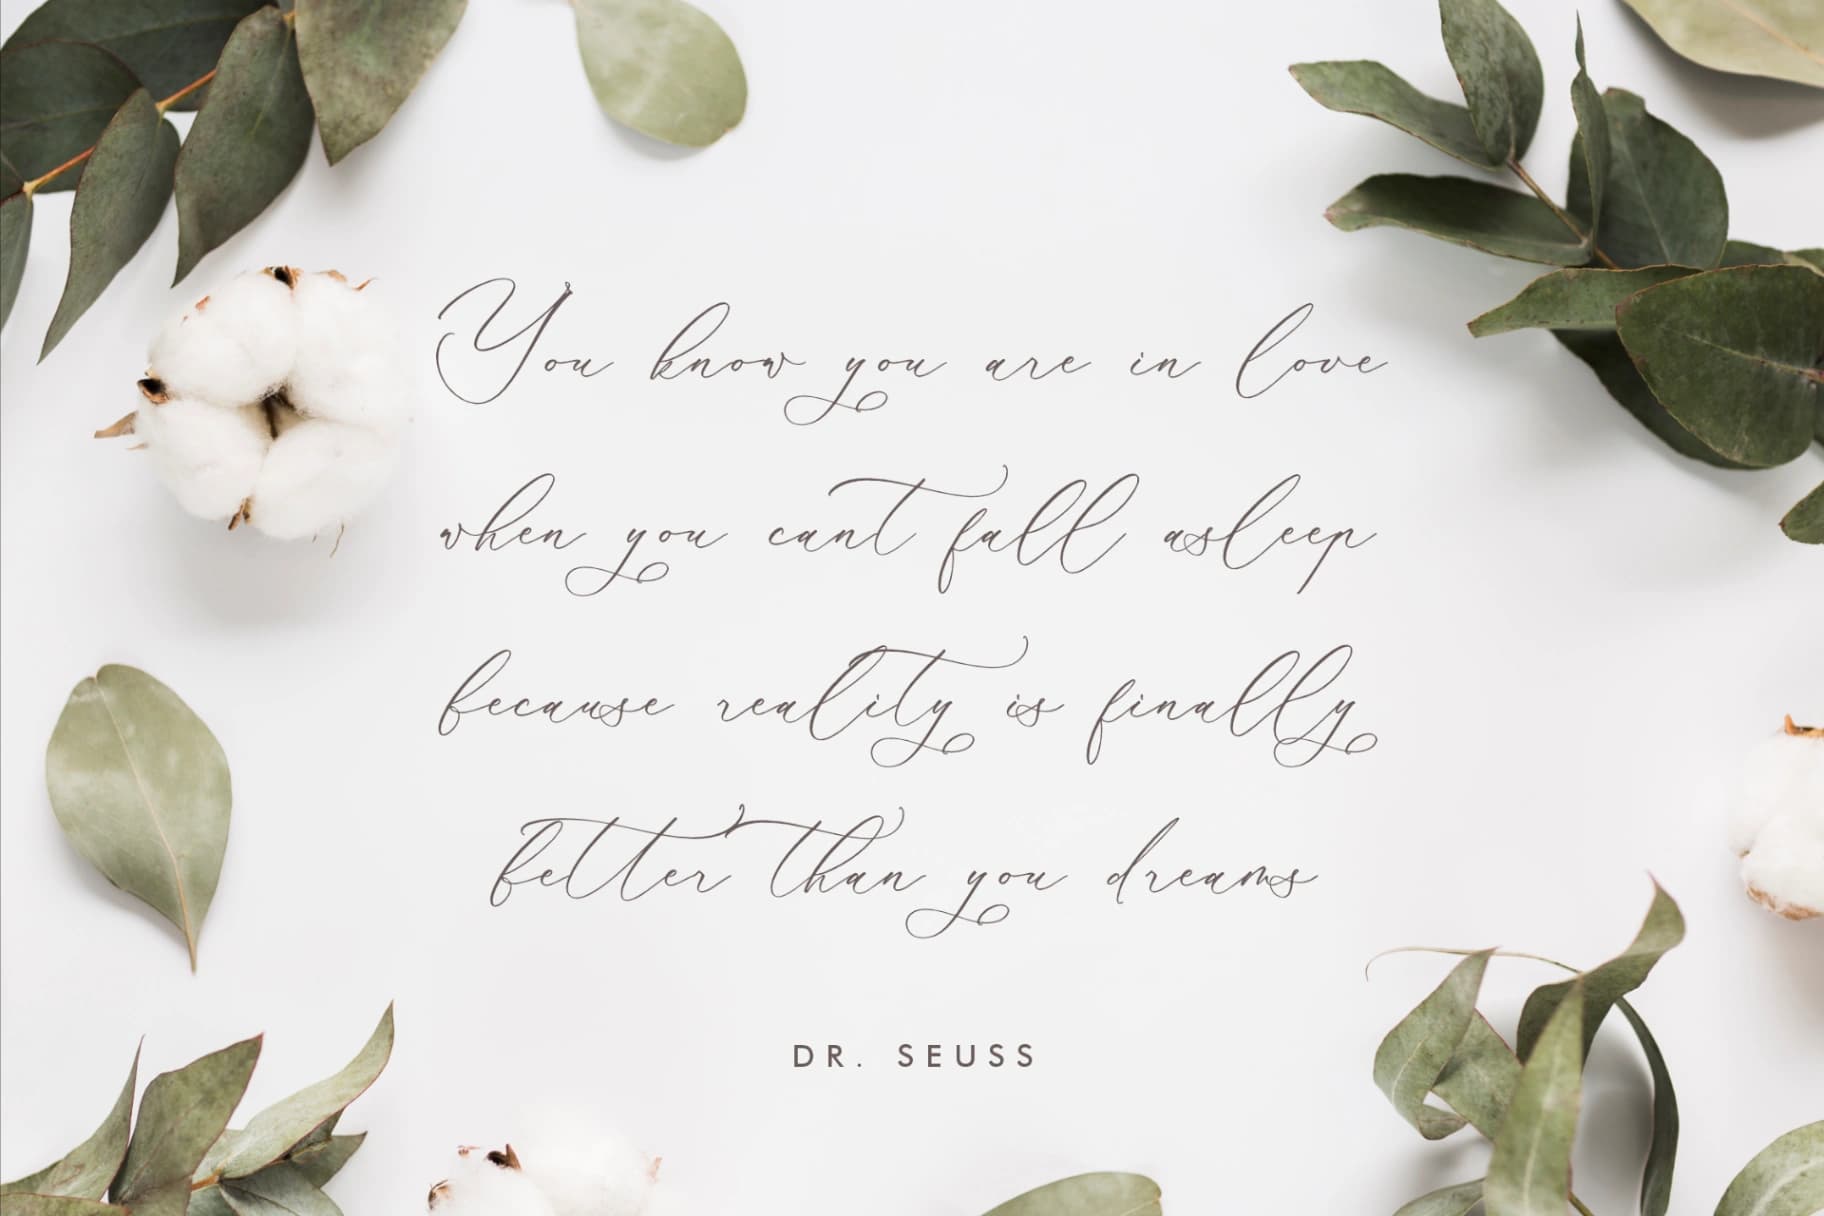 You know you are in love
when you cant fall asleep
because reality is finally
better than you dreams
DR. SEUSS